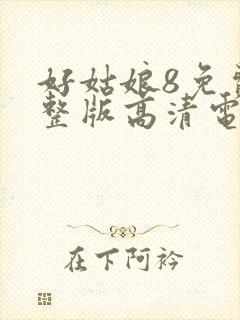 好姑娘8免费
整版高清电
在下阿衿